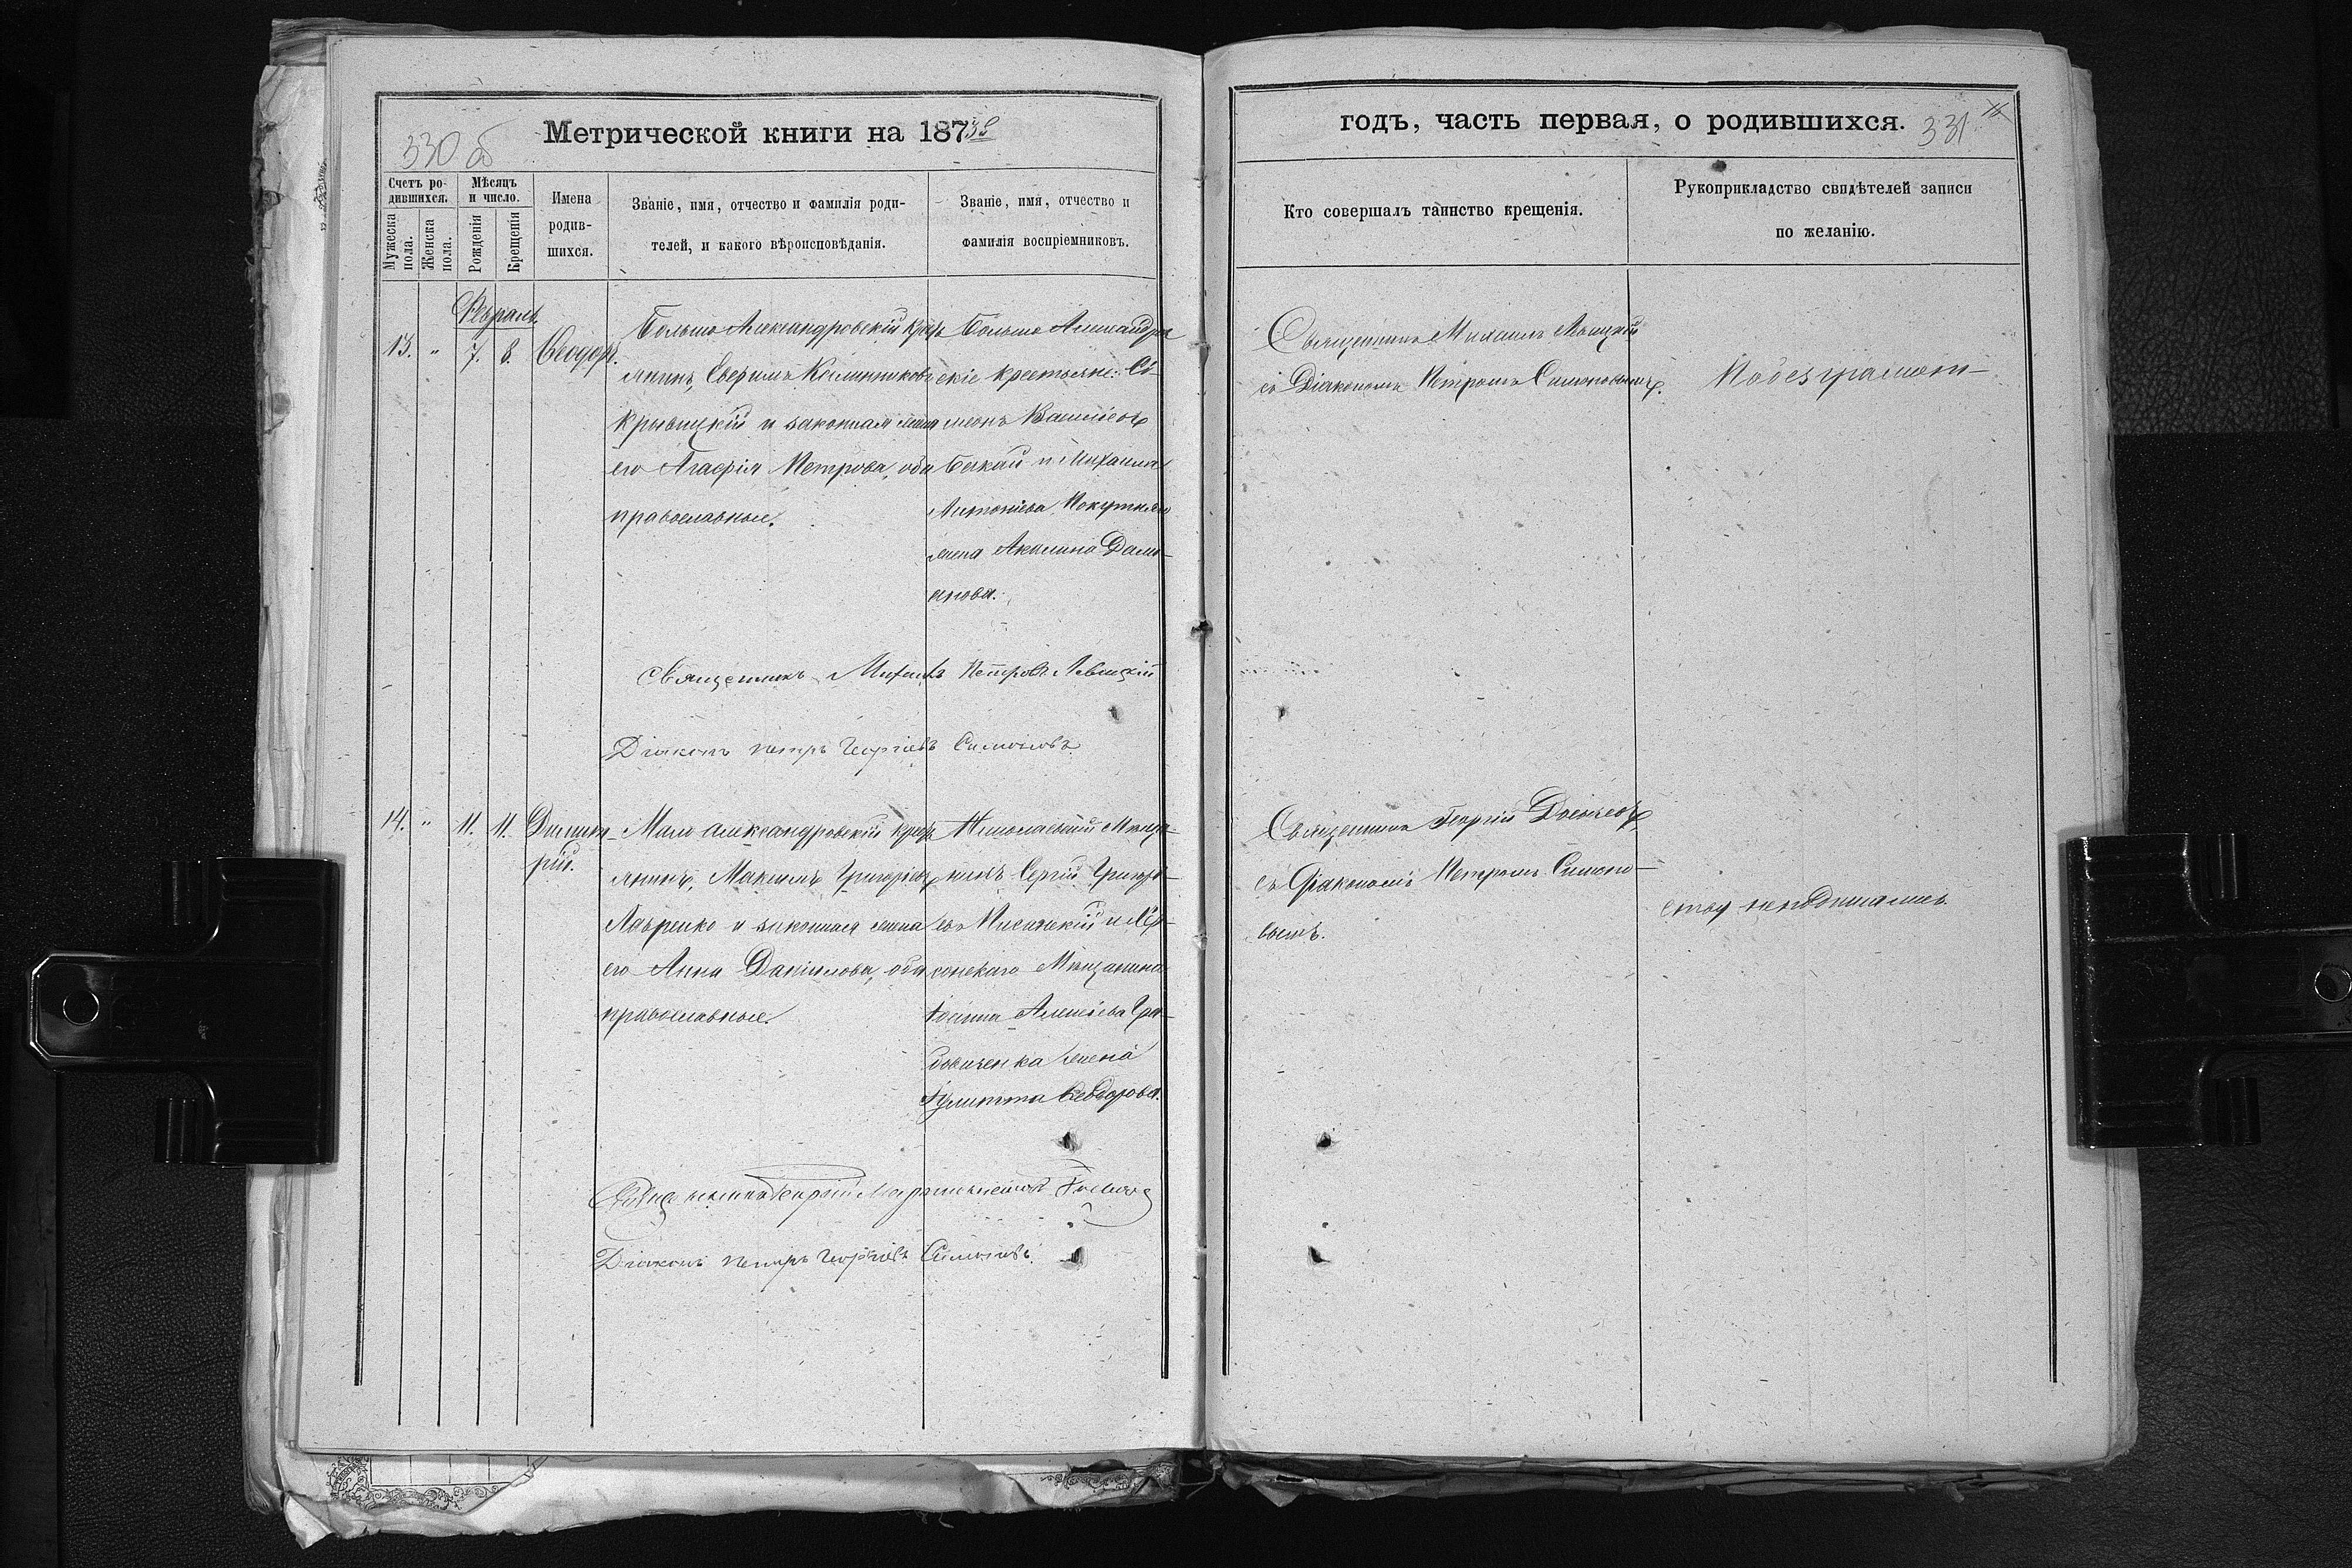 330 об
Метрической книги на 1873й
Счетъ ро-
дившихся.
Мужеска пола.
Женска пола.
Мѣсяцъ
и число.
Рожденія
Крещенія
Имена
родив-
шихся.
Званіе, имя, отчество и фамилія роди-
телей, и какого вѣроисповѣданія.
Званіе, имя, отчество и
фамилія воспріемниковъ.
Февраль.
13. " 7. 8. Ѳеодоръ.
Больше Александровскій крест
янинъ,
Крывицкій и законная жена
его Агафія Петрова, оба
православные.
Больше Александров
скіе крестьяне: Си-
меонъ Василіевъ
и Михаила
Антоніева
жена Акилина Дами-
анова.
Священникъ Михаилъ Петровъ Левицкій
Діаконъ Петръ Георгіевъ Симоновъ
14. " 11. 11. Димит
рій.
Мало Александровскій крест
янинъ, Максимъ Григоріевъ
Лавренко и законная жена
его Анна Даніилова, оба
православные.
Николаевскій Мѣща-
нинъ Сергій Григорі-
евъ и Хер-
сонскаго Мѣщанина
Іоанна Алексіева Гра-
жена
Іулитта Ѳеодорова.
Священникъ Георгій
Діаконъ Петръ Георгіевъ Симоновъ.
годъ, часть первая, о родившихся.
331
Кто совершалъ таинство крещенія.
Рукоприкладство свидѣтелей записи
по желанію.
Священникъ Михаилъ Левицкій
съ Діакономъ Петромъ Симоновымъ.
По безграмот-
Священникъ Георгій
съ Діакономъ Петромъ Симоно-
вымъ.
ству неподписались